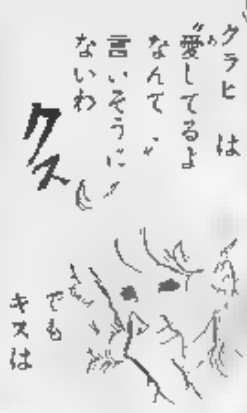 グラヒは
“愛してるよ
なんて〟
言いそうに
ないわ
クス
でも
キスは